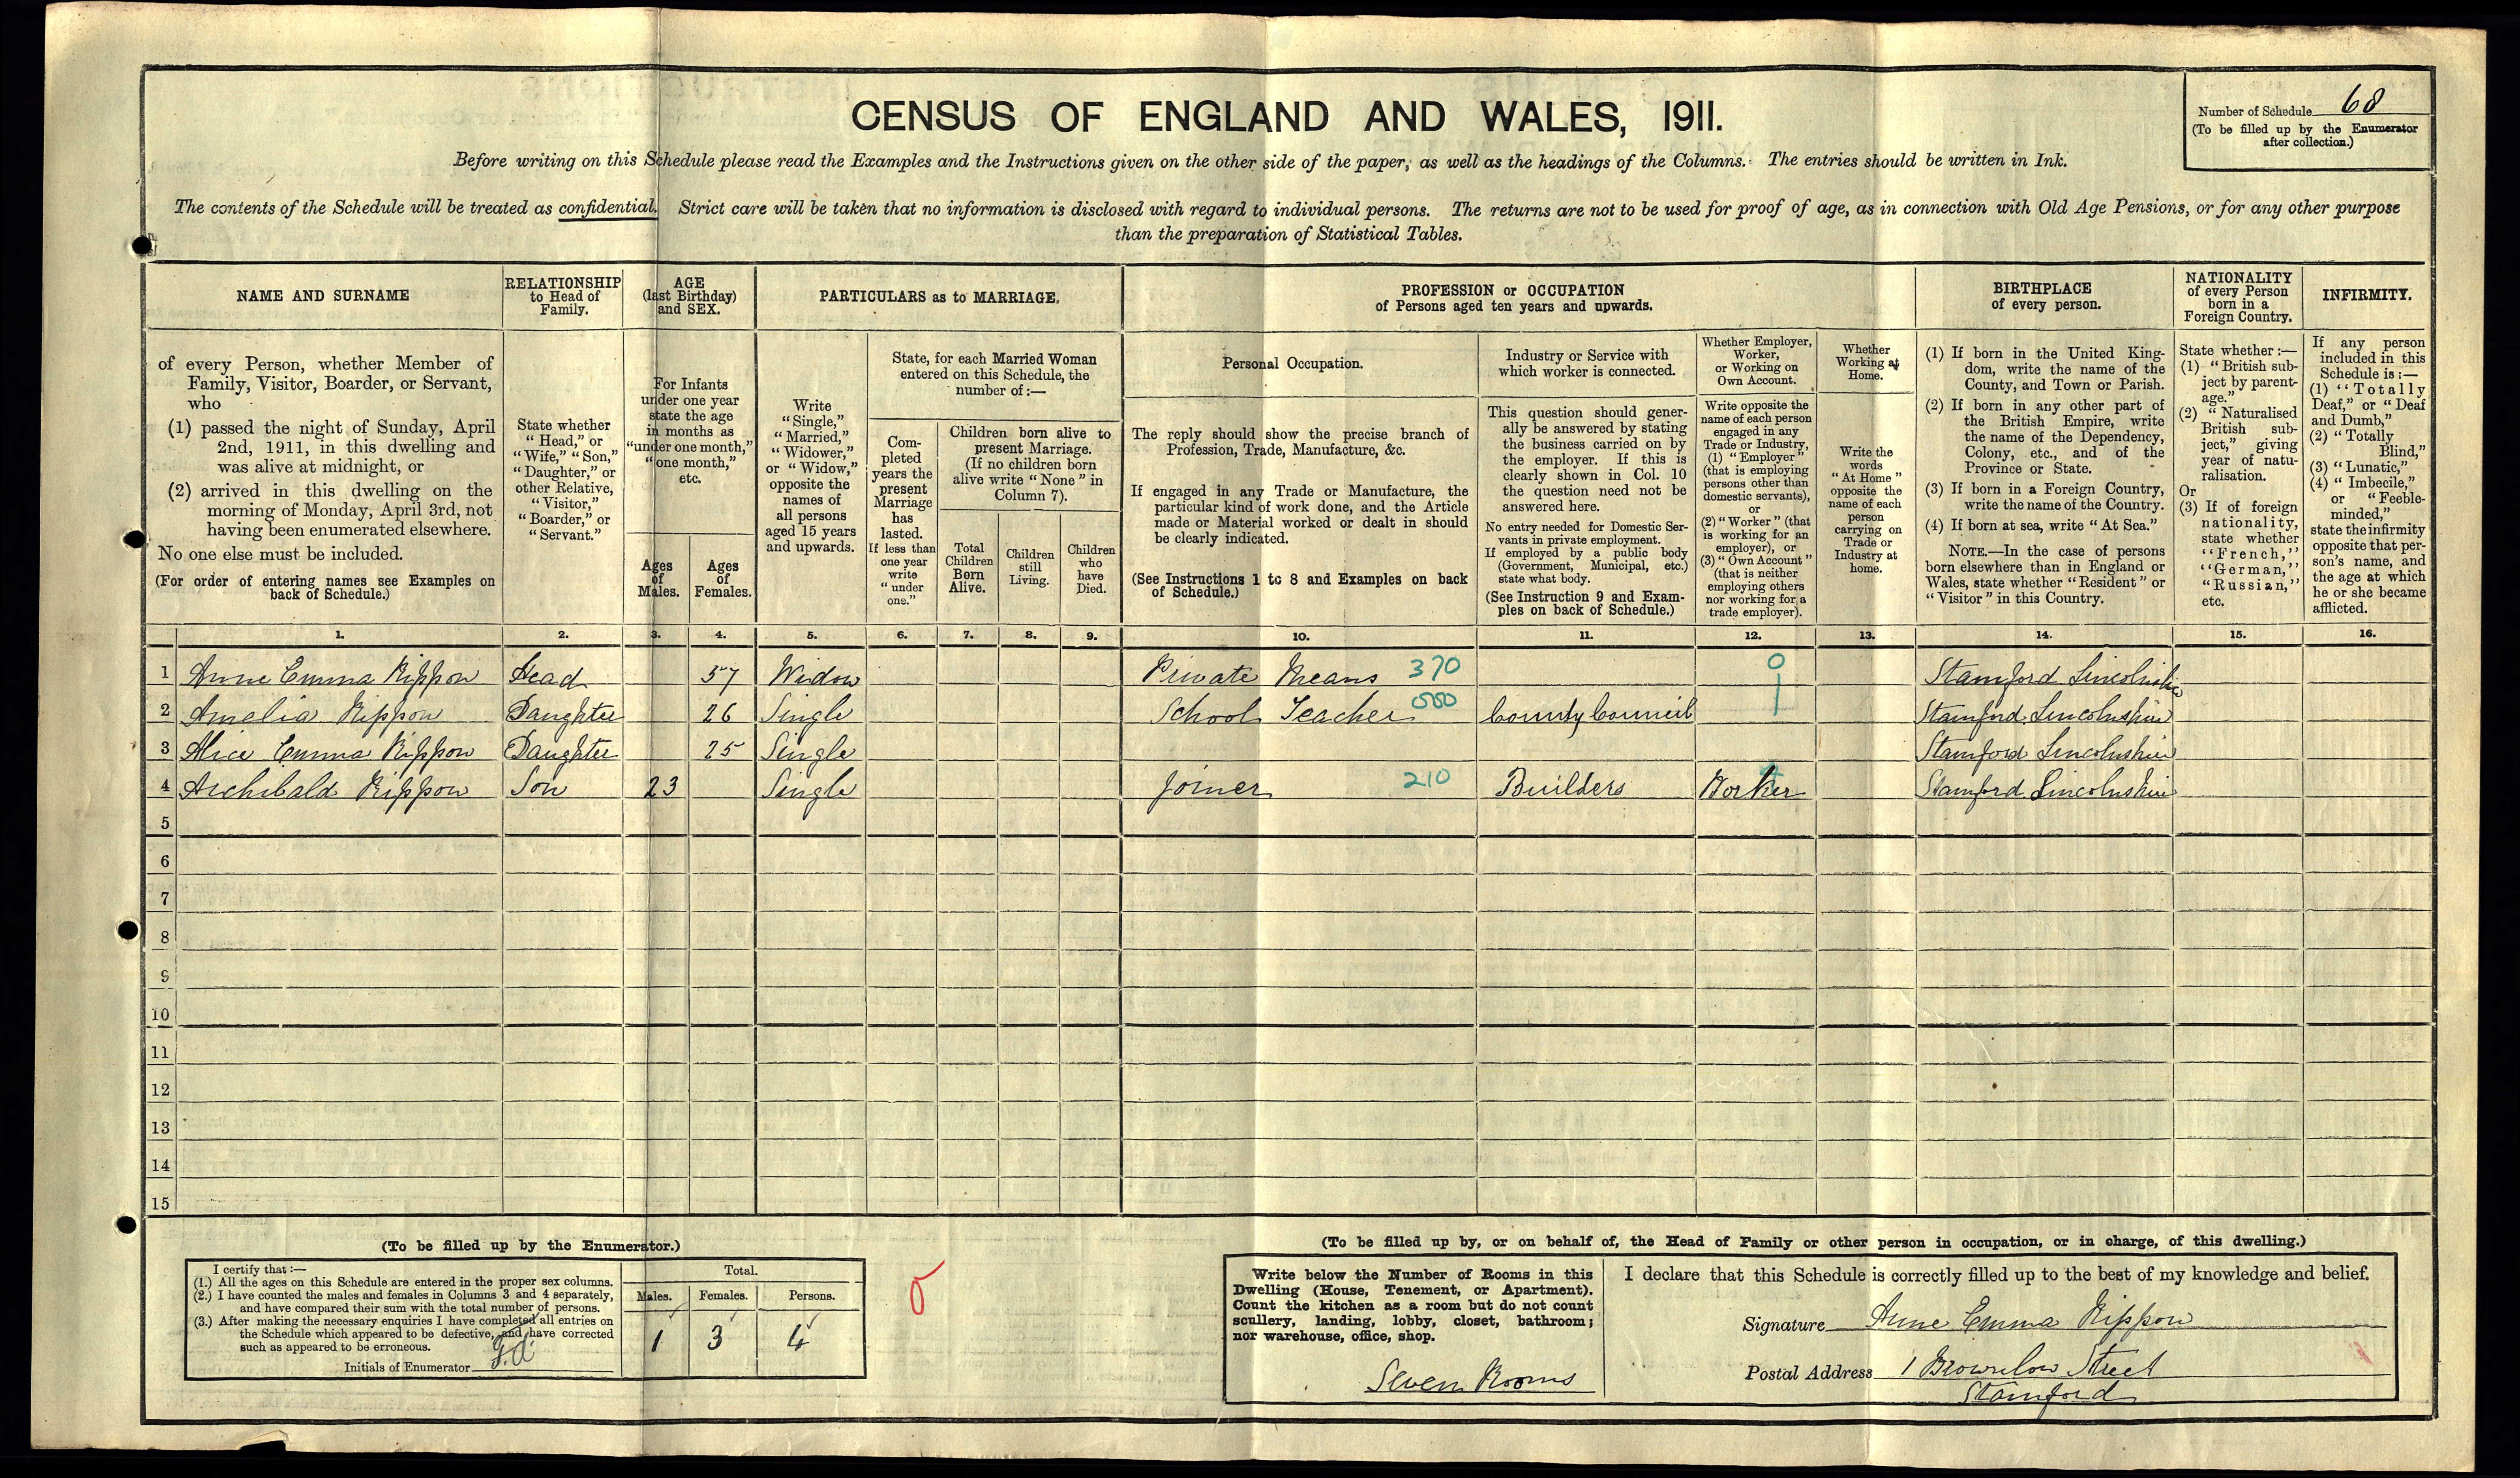 CENSUS OF ENGLAND AND WALES, 1911.
Number of Schedule 68
(To be filled up by the Enumerator
after collection.)
Before writing on this Schedule please read the Examples and the Instructions given on the other side of the paper, as well as the headings of the Columns. The entries should be written in Ink.
The contents of the Schedule will be treated as confidential. Strict care will be taken that no information is disclosed with regard to individual persons. The returns are not to be used for proof of age, as in connection with Old Age Pensions, or for any other purpose
than the preparation of Statistical Tables.
NAME AND SURNAME
of every Person, whether Member of
Family, Visitor, Boarder, or Servant,
who
(1) passed the night of Sunday, April
2nd, 1911, in this dwelling and
was alive at midnight, or
(2) arrived in this dwelling on the
morning of Monday, April 3rd, not
having been enumerated elsewhere.
No one else must be included.
(For order of entering names see Examples on
back of Schedule.)
RELATIONSHIP
to Head of
Family.
State whether
"Head," or
"Wife," "Son,"
"Daughter," or
other Relative,
"Visitor,"
"Boarder," or
"Servant."
AGE
(last Birthday)
and SEX.
For Infants
under one year
state the age
in months as
"under one month,"
"one month,"
etc.
Ages
of
Males.
Ages
of
Females.
PARTICULARS as to MARRIAGE.
Write
"Single,"
"Married,"
"Widower,"
or "Widow,"
opposite the
names of
all persons
aged 15 years
and upwards.
State, for each Married Woman
entered on this Schedule, the
number of:—
Com-
pleted
years the
present
Marriage
has
lasted.
If less than
one year
write
"under
one."
Children born alive to
present Marriage.
(If no children born
alive write "None" in
Column 7).
Total
Children
Born
Alive.
Children
still
Living.
Children
who
have
Died.
PROFESSION or OCCUPATION
of Persons aged ten years and upwards.
Personal Occupation.
The reply should show the precise branch of
Profession, Trade, Manufacture, &c.
If engaged in any Trade or Manufacture, the
particular kind of work done, and the Article
made or Material worked or dealt in should
be clearly indicated.
(See Instructions 1 to 8 and Examples on back
of Schedule.)
Industry or Service with
which worker is connected.
This question should gener-
ally be answered by stating
the business carried on by
the employer. If this is
clearly shown in Col. 10
the question need not be
answered here.
No entry needed for Domestic Ser-
vants in private employment.
If employed by a public body
(Government, Municipal, etc.)
state what body.
(See Instruction 9 and Exam-
ples on back of Schedule.)
Whether Employer,
Worker,
or Working on
Own Account.
Write opposite the
name of each person
engaged in any
Trade or Industry,
(1) "Employer"
(that is employing
persons other than
domestic servants),
or
(2) "Worker" (that
is working for an
employer), or
(3) "Own Account"
(that is neither
employing others
nor working for a
trade employer).
Whether
Working at
Home.
Write the
words
"At Home"
opposite the
name of each
person
carrying on
Trade or
Industry at
home.
BIRTHPLACE
of every person.
(1) If born in the United King-
dom, write the name of the
County, and Town or Parish.
(2) If born in any other part of
the British Empire, write
the name of the Dependency,
Colony, etc., and of the
Province or State.
(3) If born in a Foreign Country,
write the name of the Country.
(4) If born at sea, write "At Sea."
NOTE.—In the case of persons
born elsewhere than in England or
Wales, state whether "Resident" or
"Visitor" in this Country.
NATIONALITY
of every Person
born in a
Foreign Country.
State whether :—
(1) "British sub-
ject by parent-
age."
(2) "Naturalised
British sub-
ject," giving
year of natu-
ralisation.
Or
(3) If of foreign
nationality,
state whether
"French,"
"German,"
"Russian,"
etc.
INFIRMITY.
If any person
included in this
Schedule is :—
(1) "Totally
Deaf," or "Deaf
and Dumb,"
(2) "Totally
Blind,"
(3) "Lunatic,"
(4) "Imbecile,"
or "Feeble-
minded,"
state the infirmity
opposite that per-
son's name, and
the age at which
he or she became
afflicted.
1. 2. 3. 4. 5. 6. 7. 8. 9. 10. 11. 12. 13. 14. 15. 16.
1 Anne Emma Rippon Head 57 Widow Private Means 370 0 Stamford Lincolnshire
2 Amelia Rippon Daughter 26 Single School Teacher County Council 1 Stamford Lincolnshire
3 Alice Emma Rippon Daughter 25 Single Stamford Lincolnshire
4 Archibald Rippon Son 23 Single Joiner 210 Builders Worker Stamford Lincolnshire
5
6
7
8
9
10
11
12
13
14
15
(To be filled up by the Enumerator.)
I certify that :—
(1.) All the ages on this Schedule are entered in the proper sex columns.
(2.) I have counted the males and females in Columns 3 and 4 separately,
and have compared their sum with the total number of persons.
(3.) After making the necessary enquiries I have completed all entries on
the Schedule which appeared to be defective, and have corrected
such as appeared to be erroneous.
Initials of Enumerator
Total.
Males. Females. Persons.
1 3 4
(To be filled up by, or on behalf of, the Head of Family or other person in occupation, or in charge, of this dwelling.)
Write below the Number of Rooms in this
Dwelling (House, Tenement, or Apartment).
Count the kitchen as a room but do not count
scullery, landing, lobby, closet, bathroom;
nor warehouse, office, shop.
Seven Rooms
I declare that this Schedule is correctly filled up to the best of my knowledge and belief.
Signature Anne Emma Rippon
Postal Address 1 Brownlow Street
Stamford